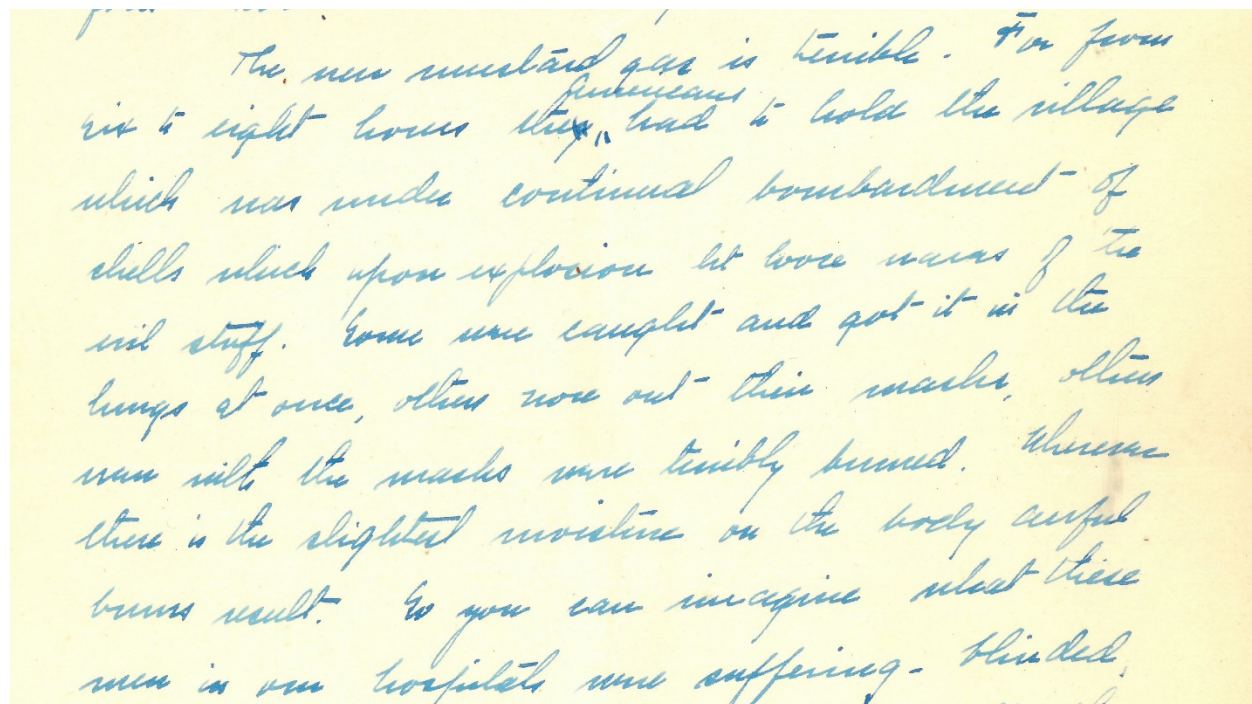 The new mustard gas is terrible. For from
Americans
six to eight hours they had to hold the village
which was under continual bombardment of
shells which upon explosion let loose waves of the
evil stuff. Some were caught and got it in the
lungs at once, others wore out their masks, others
even with the masks were terribly burned. Wherever
there is the slightest moisture on the body awful
burns result. So you can imagine what these
men in our hospitals were suffering - blinded,